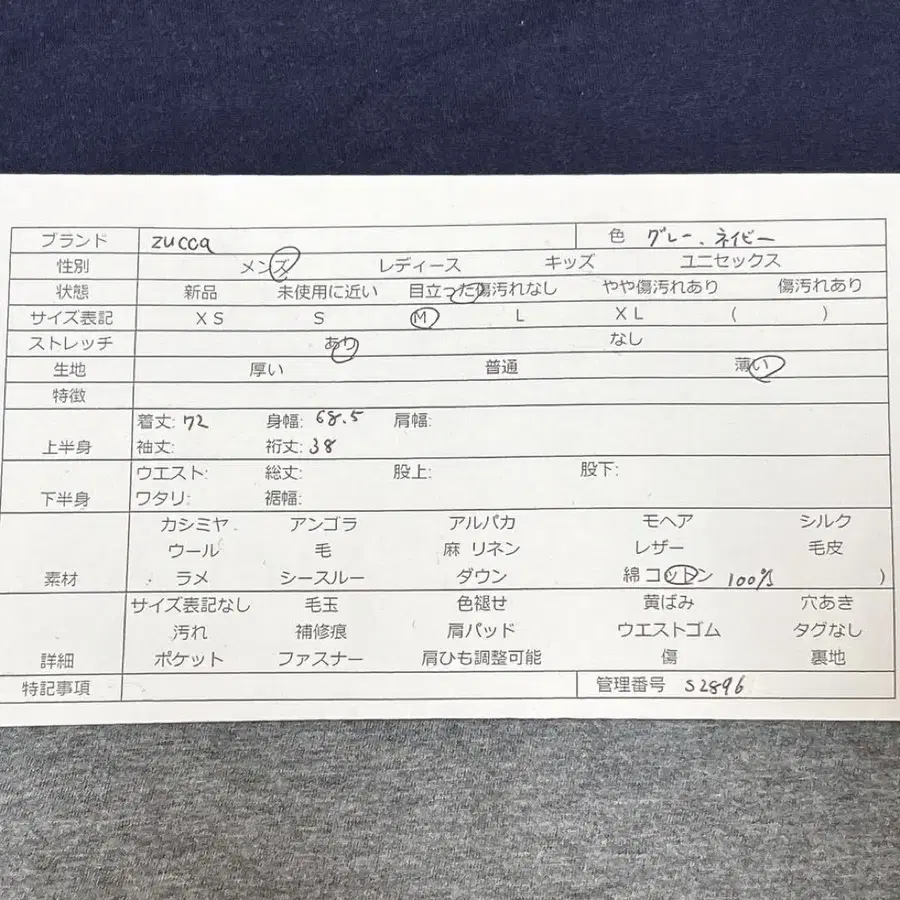 ブランド zucca 色 グレー、ネイビー
性別 メンズ レディース キッズ ユニセックス
状態 新品 未使用に近い 目立った傷汚れなし やや傷汚れあり 傷汚れあり
サイズ表記 XS S M L XL ( )
ストレッチ あり なし
生地 厚い 普通 薄い
特徴
着丈: 72 身幅: 68.5 肩幅:
上半身 袖丈: 裄丈: 38
ウエスト: 総丈: 股上: 股下:
下半身 ワタリ: 裾幅:
カシミヤ アンゴラ アルパカ モヘア シルク
ウール 毛 麻 リネン レザー 毛皮
素材 ラメ シースルー ダウン 綿 コットン 100% )
サイズ表記なし 毛玉 色褪せ 黄ばみ 穴あき
汚れ 補修痕 肩パッド ウエストゴム タグなし
詳細 ポケット ファスナー 肩ひも調整可能 傷 裏地
特記事項 管理番号 S2896